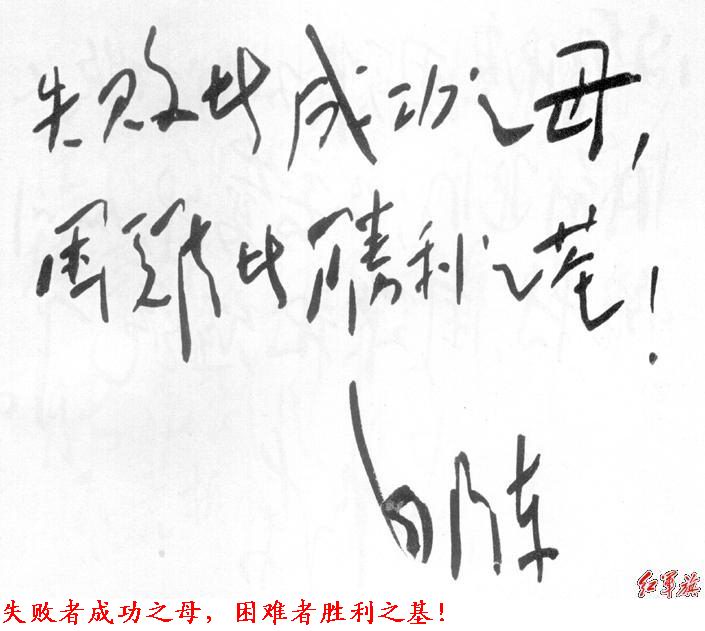 失败者成功之母，
困難者勝利之基！
红军旗
失败者成功之母，困难者胜利之基！